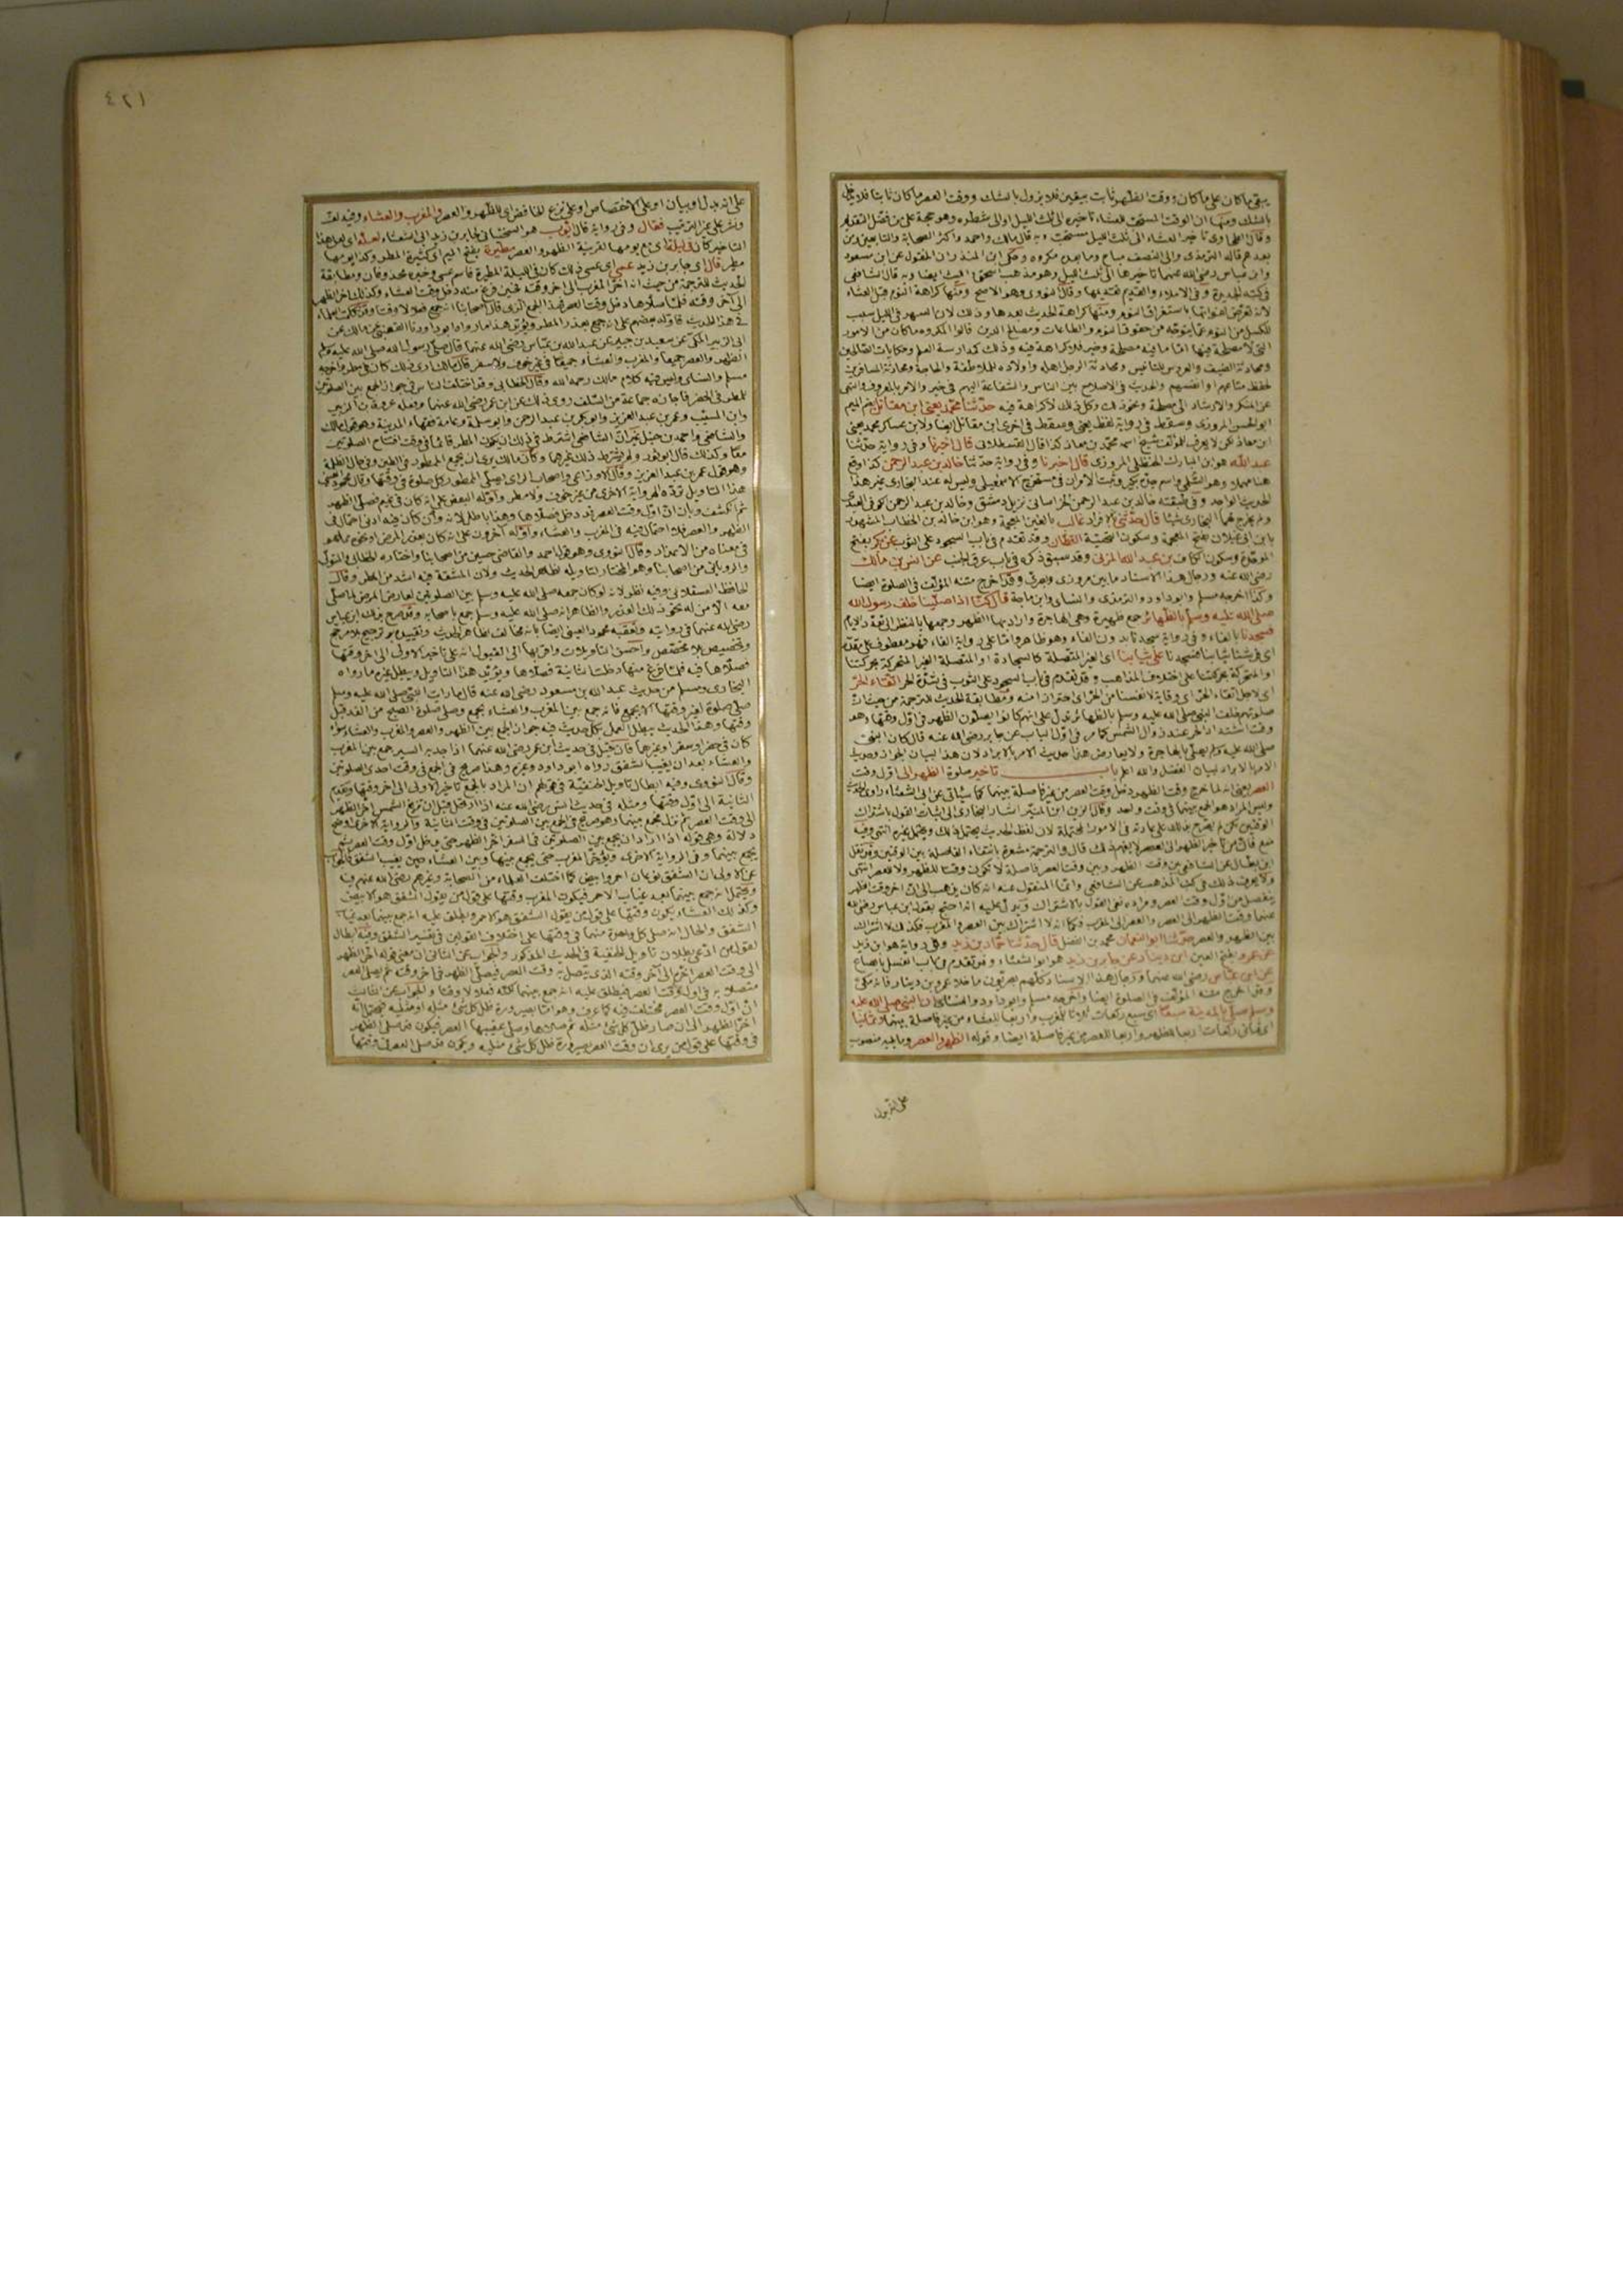 يبقى ما كان على ما كان ووقت الظهر ثابت بيقين فلا يزول بالشك ووقت العصر ما كان ثابتا فلا يدخل
بالشك ومنها ان الوقت المستحب للعشاء تأخيره الى ثلث الليل او الى شطره وهو حجة على من فضل التقديم
وقال الطحاوى تأخير العشاء الى ثلث الليل مستحب وبه قال مالك واحمد واكثر الصحابة والتابعين ومن
بعدهم قاله الترمذى والى النصف مباح وما بعده مكروه وحكى ابن المنذر ان المنقول عن ابن مسعود
وابن عباس رضى الله عنهما تأخيرها الى ثلث الليل وهو مذهب اسحق الليث ايضا وبه قال الشافعى
فى كتبه الجديدة وفى الاملاء والقديم تقديمها وقال النووى وهو الاصح ومنها كراهة النوم قبل العشاء
لانه تعرض لفواتها باستغراق النوم ومنها كراهة الحديث بعدها وذلك لان السهر فى الليل سبب
للكسل من النوم عما يتوجه من حقوق النوم والطاعات ومصالح الدين قالوا المكروه ما كان من الامور
التى لا مصلحة فيها اما ما فيه مصلحة وخير فلا كراهة فيه وذلك كمدارسة العلم وحكايات الصالحين
ومحادثة الضيف والعروس للتأنيس ومحادثة الرجل اهله واولاده للملاطفة والحاجة ومحادثة المسافرين
لحفظ متاعهم او انفسهم والحديث فى الاصلاح بين الناس والشفاعة اليهم فى خير والامر بالمعروف والنهى
عن المنكر والارشاد الى مصلحة ونحو ذلك وكل ذلك لا كراهة فيه حدثنا محمد يعنى ابن مقاتل بضم الميم
ابو الحسن المروزى وسقط فى رواية لفظ يعنى وسقط فى اخرى ابن مقاتل ايضا ولابن عساكر محمد يعنى
ابن معاذ لكن لا يعرف للمؤلف شيخ اسمه محمد بن معاذ كذا قال القسطلانى قال اخبرنا وفى رواية حدثنا
عبد الله هو ابن المبارك الحنظلى المروزى قال اخبرنا وفى رواية حدثنا خالد بن عبد الرحمن كذا وقع
هنا مهملا وهو السلمى واسم جده بكير وثبت الامران فى مستخرج الاسمعيلى وليس له عند البخارى غير هذا
الحديث الواحد وفى طبقته خالد بن عبد الرحمن الخراسانى نزيل دمشق وخالد بن عبد الرحمن الكوفى العبدى
ولم يخرج لهما البخارى شيئا قال حدثنى بالافراد غالب بالغين المعجمة وهو ابن خالد بن الخطاب المشهور
بابن ابى غيلان بفتح المعجمة وسكون التحتية القطان وقد تقدم فى باب السجود على الثوب عن بكر بفتح
الموحدة وسكون الكاف بن عبد الله المزنى وقد سبق ذكره فى باب عرق الجنب عن انس بن مالك
رضى الله عنه ورجال هذا الاسناد ما بين مروزى وبصرى وقد اخرج متنه المؤلف فى الصلوة ايضا
وكذا اخرجه مسلم وابو داود والترمذى والنسائى وابن ماجة قال كنا اذا صلينا خلف رسول الله
صلى الله عليه وسلم بالظهائر جمع ظهيرة وهى الهاجرة واراد بها الظهر وجمعها بالنظر الى تعدد الايام
فسجدنا بالفاء وفى رواية سجدنا بدون الفاء وهو ظاهر واما على رواية الفاء فهو معطوف على مقدر
اى فرشنا ثيابنا فسجدنا على ثيابنا اى الغير المتصلة كالسجادة او المتصلة الغير المتحركة بحركتنا
او المتحركة بحركتنا على اختلاف المذاهب وقد تقدم فى باب السجود على الثوب فى شدة الحر اتقاء الحر
اى لاجل اتقاء الحر اى وقاية لانفسنا من الحر اى احترازا منه ومطابقة الحديث للترجمة من حيث ان
صلوتهم خلف النبى صلى الله عليه وسلم بالظهائر تدل على انهم كانوا يصلون الظهر فى اول وقتها وهو
وقت اشتداد الحر عند زوال الشمس كما مر فى اول الباب عن جابر رضى الله عنه قال كان النبى
صلى الله عليه وسلم يصلى بالهاجرة ولا يعارض هذا حديث الامر بالابراد لان هذا لبيان الجواز وحديث
الامر بالابراد لبيان الفضل والله اعلم باب تأخير صلوة الظهر الى اول وقت
العصر يعنى انه لما خرج وقت الظهر دخل وقت العصر من غير فاصلة بينهما كما سيأتى عن ابى الشعثاء راوى الحديث
وليس المراد هو الجمع بينهما فى وقت واحد وقال الزين ابن المنير اشار البخارى الى اثبات القول باشتراك
الوقتين لكن لم يصرح بذلك على عادته فى الامور المحتملة لان لفظ الحديث يحتمل ذلك ويحتمل غيره انتهى وفيه
منع فان من تأخير الظهر الى العصر لا يفهم ذلك قال والترجمة مشعرة بانتفاء الفاصلة بين الوقتين وقد نقل
ابن بطال عن الشافعى بين وقت الظهر وبين وقت العصر فاصلة لا تكون وقتا للظهر ولا للعصر انتهى
ولا يعرف ذلك فى كتب المذهب عن الشافعى وانما المنقول عنه انه كان يذهب الى ان آخر وقت الظهر
ينفصل من اول وقت العصر ومراده نفى القول بالاشتراك ويدل عليه انه احتج بقول ابن عباس رضى الله
عنهما وقت الظهر الى العصر والعصر الى المغرب فكما انه لا اشتراك بين العصر والمغرب فكذلك لا اشتراك
بين الظهر والعصر حدثنا ابو النعمان محمد بن الفضل قال حدثنا حماد بن زيد وفى رواية هو ابن زيد
عن عمرو بفتح العين ابن دينار عن جابر بن زيد هو ابو الشعثاء وقد تقدم فى باب الغسل بالصاع
عن ابن عباس رضى الله عنهما ورجال هذا الاسناد كلهم بصريون ما خلا عمرو بن دينار فانه مكى
وقد اخرج متنه المؤلف فى الصلوة ايضا واخرجه مسلم وابو داود والنسائى ان النبى صلى الله عليه
وسلم صلى بالمدينة سبعا اى سبع ركعات ثلاثا للمغرب واربعا للعشاء من غير فاصلة بينهما وثمانيا
اى ثمانى ركعات اربعا للظهر واربعا للعصر من غير فاصلة ايضا وقوله الظهر والعصر وما بعده منصوب
٤٢١
على انه بدل او بيان او على الاختصاص او على نزع الخافض اى للظهر والعصر والمغرب والعشاء وفيه لف
ونشر على غير الترتيب فقال وفى رواية قال ايوب هو السختيانى لجابر بن زيد ابى الشعثاء لعله اى لعل هذا
التأخير كان فى ليلة اى مع يومها لقرينة الظهر والعصر مطيرة بفتح الميم اى كثيرة المطر وكذا يومها
مطير قال اى جابر بن زيد عسى اى عسى ذلك كان فى الليلة المطيرة فاسم عسى وخبره محذوفان ومطابقة
الحديث للترجمة من حيث انه اخر المغرب الى آخر وقته فحين فرغ منه دخل وقت العشاء وكذلك اخر الظهر
الى آخر وقته فلما صلاها دخل وقت العصر فهذا الجمع الذى قال اصحابنا انه جمع فعلا لا وقتا وقد تكلمت العلماء
فى هذا الحديث فاوله بعضهم على انه جمع بعذر المطر ويؤيد هذا ما رواه ابو داود ثنا القعنبى عن مالك عن
ابى الزبير المكى عن سعيد بن جبير عن عبد الله بن عباس رضى الله عنهما قال صلى رسول الله صلى الله عليه وسلم
الظهر والعصر جميعا والمغرب والعشاء جميعا فى غير خوف ولا سفر قال مالك ارى ذلك كان فى مطر واخرجه
مسلم والنسائى وليس فيه كلام مالك رحمه الله وقال الخطابى وقد اختلف الناس فى جواز الجمع بين الصلوتين
للمطر فى الحضر فاجازه جماعة من السلف روى ذلك عن ابن عمر رضى الله عنهما وفعله عروة بن الزبير
وابن المسيب وعمر بن عبد العزيز وابو بكر بن عبد الرحمن وابو سلمة وعامة فقهاء المدينة وهو قول مالك
والشافعى واحمد بن حنبل غير ان الشافعى اشترط فى ذلك ان يكون المطر قائما فى وقت افتتاح الصلوتين
معا وكذلك قال ابو ثور ولم يشترط ذلك غيرهما وكان مالك يرى ان يجمع الممطور فى الطين وفى حال الظلمة
وهو قول عمر بن عبد العزيز وقال الاوزاعى واصحاب الراى يصلى الممطور كل صلوة فى وقتها وقال محمود العينى
هذا التاويل ترده الرواية الاخرى من غير خوف ولا مطر واوله البعض على انه كان فى غيم فصلى الظهر
ثم انكشف وبان ان اول وقت العصر قد دخل فصلاها وهذا باطل لانه وان كان فيه ادنى احتمال فى
الظهر والعصر فلا احتمال فيه فى المغرب والعشاء واوله آخرون على انه كان بعذر المرض او نحوه مما هو
فى معناه من الاعذار وقال النووى وهو قول احمد والقاضى حسين من اصحابنا واختاره الخطابى والمتولى
والرويانى من اصحابنا وهو المختار لتاويله لظاهر الحديث ولان المشقة فيه اشد من المطر وقال
الحافظ العسقلانى وفيه نظر لانه لو كان جمعه صلى الله عليه وسلم بين الصلوتين لعارض المرض لما صلى
معه الا من له نحو ذلك العذر والظاهر انه صلى الله عليه وسلم جمع باصحابه وقد صرح بذلك ابن عباس
رضى الله عنهما فى روايته وتعقبه محمود العينى ايضا بانه مخالف لظاهر الحديث وتقييده ترجيح بلا مرجح
وتخصيص بلا مخصص واحسن التاويلات واقربها الى القبول انه على تأخير الاول الى آخر وقتها
فصلاها فيه فلما فرغ منها دخلت الثانية فصلاها ويؤيد هذا التاويل ويبطل غيره ما رواه
البخارى ومسلم من حديث عبد الله بن مسعود رضى الله عنه قال ما رايت النبى صلى الله عليه وسلم
صلى صلوة لغير وقتها الا بجمع فانه جمع بين المغرب والعشاء بجمع وصلى صلوة الصبح من الغد قبل
وقتها وهذا الحديث يبطل العمل بكل حديث فيه جواز الجمع بين الظهر والعصر والمغرب والعشاء سواء
كان فى حضر او سفر او غيرهما فان قيل فى حديث ابن عمر رضى الله عنهما اذا جد به السير جمع بين المغرب
والعشاء بعد ان يغيب الشفق رواه ابو داود وغيره وهذا صريح فى الجمع فى وقت احدى الصلوتين
وقال النووى وفيه ابطال تاويل الحنفية فى قولهم ان المراد بالجمع تأخير الاولى الى آخر وقتها وتقديم
الثانية الى اول وقتها ومثله فى حديث انس رضى الله عنه اذا ارتحل قبل ان تزيغ الشمس اخر الظهر
الى وقت العصر ثم نزل فجمع بينهما وهو صريح فى الجمع بين الصلوتين فى وقت الثانية والرواية الاخرى اوضح
دلالة وهى قوله اذا اراد ان يجمع بين الصلوتين فى السفر اخر الظهر حتى يدخل اول وقت العصر ثم
يجمع بينهما وفى الرواية الاخرى ويؤخر المغرب حتى يجمع بينها وبين العشاء حين يغيب الشفق فالجواب
عن الاول ان الشفق نوعان احمر وابيض كما اختلف العلماء من الصحابة وغيرهم رضى الله عنهم فيه
ويحتمل انه جمع بينهما بعد غياب الاحمر فيكون المغرب وقتها على قول من يقول الشفق هو الابيض
وكذلك العشاء يكون وقتها على قول من يقول الشفق هو الاحمر واطلق عليه انه جمع بينهما بعد غياب
الشفق والحال انه صلى كل واحدة منهما فى وقتها على اختلاف القولين فى تفسير الشفق وفيه ابطال
لقول من ادعى بطلان تاويل الحنفية فى الحديث المذكور والجواب عن الثانى ان معنى قوله اخر الظهر
الى وقت العصر اخره الى آخر وقته الذى يتصل به وقت العصر فيصلى الظهر فى آخر وقته ثم يصلى العصر
متصلا به فى اول وقت العصر فيطلق عليه انه جمع بينهما لكنه فعلا لا وقتا والجواب عن الثالث
ان اول وقت العصر مختلف فيه كما عرف وهو اما بصيرورة ظل كل شئ مثله او مثليه فيحتمل انه
اخر الظهر الى ان صار ظل كل شئ مثله ثم صلاها وصلى عقيبها العصر فيكون قد صلى الظهر
فى وقتها على قول من يرى ان وقت العصر بصيرورة ظل كل شئ مثليه ويكون قد صلى العصر فى وقتها